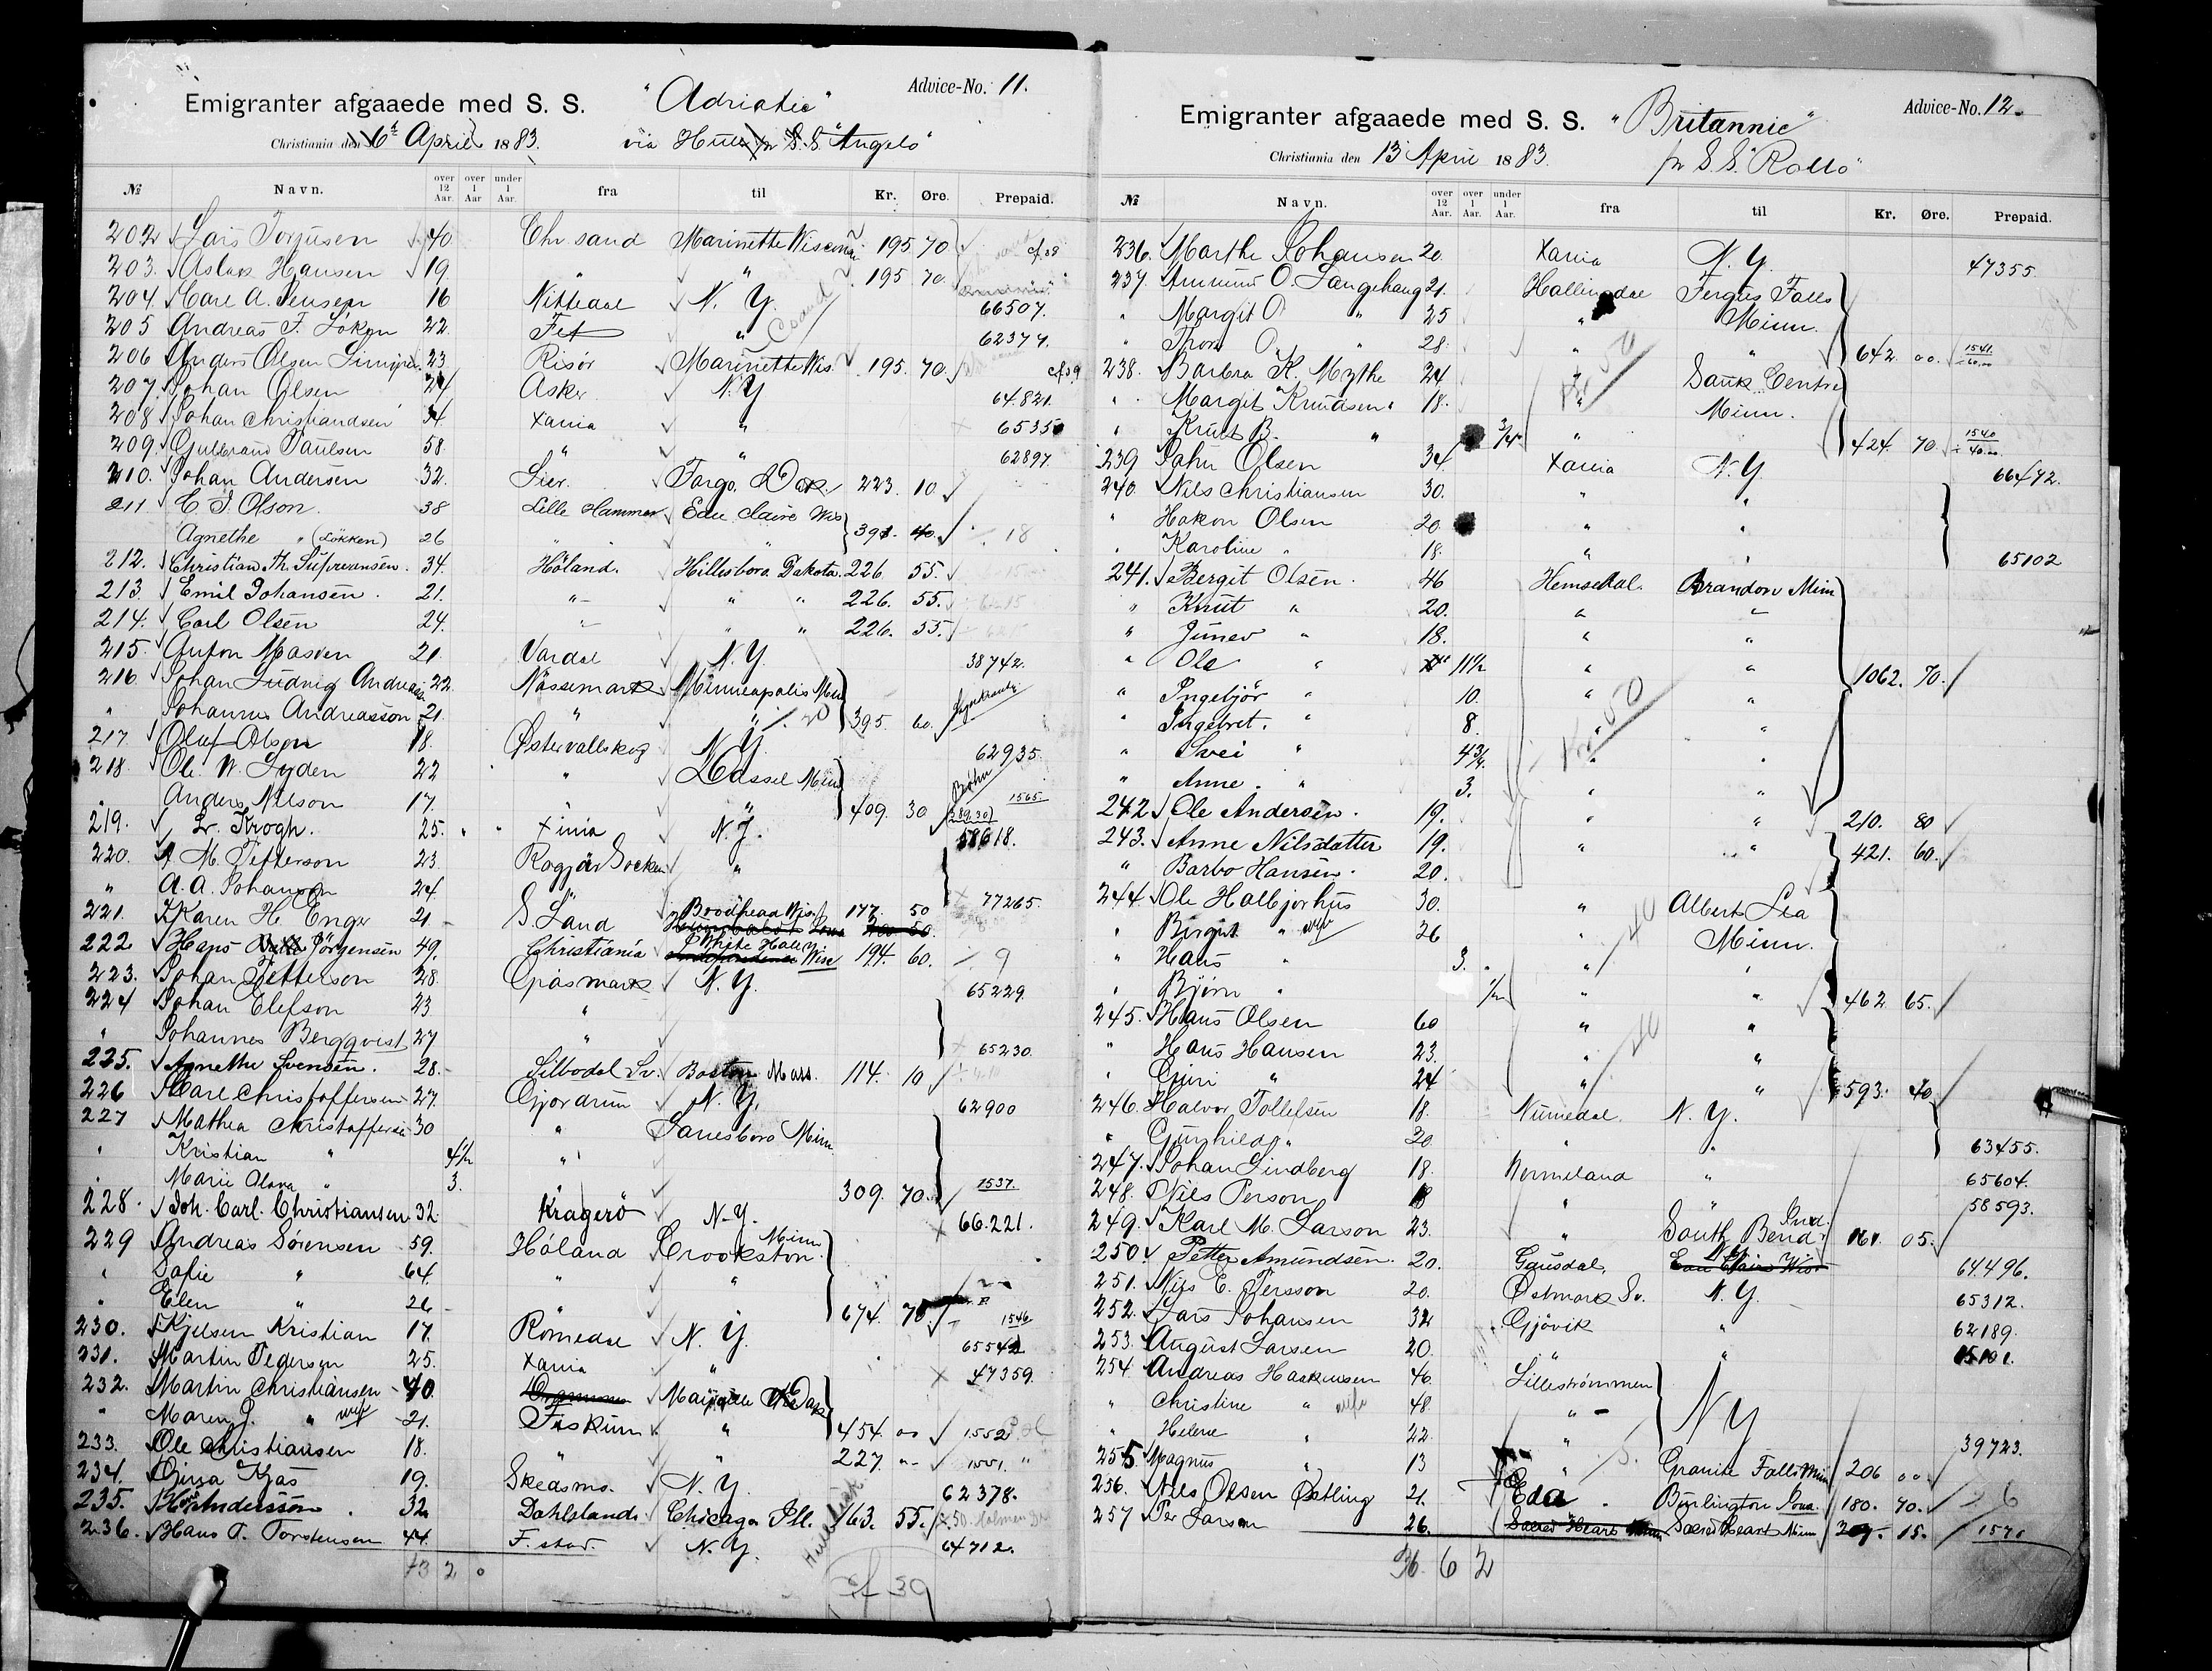 Advice-No. 11.
Emigranter afgaaede med S. S. "Adriatic"
Christiania den 6te April 1883. via Hull pr S.S. "Angelo"
No Navn. over 12 Aar. over 1 Aar under 1 Aar. fra til Kr. Øre. Prepaid.
202 Lars Torjusen 40 Chr.sand Marinette Wisconsin 195 70
203. Aslak Hansen 19 " " 195 70
204. Carl A. Jensen 16 Nittedal N. Y. 66507.
205 Andreas F. Löken 22. Fet " 62377.
206 Anders Olsen 23 Risör Marinette Wis. 195. 70.
207. Johan Olsen 24 Asker N.Y 64.821.
208 Johan Christiandsen 34 Xania "
209. Gulbrand Paulsen 58 " " 62897
210. Johan Andersen 32. Lier. Fargo. Dak. 223. 10.
211 C. J. Olson. 38 Lille Hammer Eau Claire Wis
Agnethe " (Lökken) 26 " " 391. 40. 18
212. Christian Th. 34. Höland. Hillsboro. Dakota. 226 55.
213 Emil Johansen. 21. "- " " 226. 55.
214. Carl Olsen 24. " " " 226. 55.
215. Anton 21. Vardal N.Y. 38742.
216. Johan Ludvig Andreasson 22 Nössemark Minneapolis Min
" Johannes Andreasson 21. " " 395. 60.
217. Oluf Olson 18. Östervallskog N. Y. 62935.
218. Ole W. Lyden 22 " Dassel Min
Anders Nilson 17. " " 409. 30 1565
219. Lr. Krogh. 25. Xania N.Y. 58618.
220. A. M. Petterson 23 Socken "
" A. A. Johanson 24. " 77265.
221. Karen H. Enger 21 S. Land Brodhead Wis 177. 50
222. Hans Jörgensen 49. Christiania White Hall Wisc 194. 60. 9
223. Johan Petterson 28. N. Y. 65229.
224 Johan Elefson 23 "
" Johannes Bergqvist 27 65230.
225. Agnethe Svensen. 28. Silbodal Sv. Boston Mass. 114. 10
226 Carl Christoffersen 27. Gjerdrum N. Y. 62900
227 Mathea Christoffersen 30 " Lanesboro Minn
" Kristian " 4½ "
" Marie Olava " 3. " 309. 70. 1537.
228. Joh. Carl. Christiansen 32 Kragerö N.Y. 66.221.
229 Andreas Sörensen 59. Höland Crookston Minn.
" Sofie " 64. " "
" Elen " 26 " 674. 70. 1546
230. Kjelsen Kristian 17. Romedal N. Y. 65542
231. Martin Pedersen 25. Xania " 47359.
232. Martin Christiansen 40 Mayville Dak
" Maren J. " wife 21. Fiskum " 454. oo 1552
233. Ole Christiansen 18. " " 227. " 1551. "
234. 19. Skedsmo. N. Y. 62378.
235. Andersson. 32. Dahlsland. Chicago Ill. 163. 55.
236. Hans T. Torstensen 44. F. stad. N. Y. 64712.
73 2 0
39
Advice-No. 12.
Emigranter afgaaede med S. S. "Britannic"
Christiania den 13 April 1883. pr S.S. "Rollo"
No Navn. over 12 Aar. over 1 Aar. under 1 Aar. fra til Kr. Øre. Prepaid.
236. Marthe Johansen 20. Xania N. Y. 47355.
237. O. Langehaug 21. Hallingdal Fergus Falls
" Margit O " 25 " Minn.
" Thor O " 28. " " 642. oo. 1541.
238. Barbra K. Mythe 24. " Sauk Centre
" Margit Knudsen. 18. " Minn.
" Knut B. " ¾ " 424. 70. 1540
239 John Olsen 34. Xania N.Y. 66472.
240. Nils Christiansen 30. " "
" Hakon Olsen 20. " "
" Karoline " 18. " " 65102
241. Bergit Olsen. 46 Hemsedal. Brandon Minn
" Knut " 20. " "
" " 18. " "
" Ole " 11½ " " 1062. 70.
" Ingebjör " 10. " "
" Ingebret. " 8. " "
" " 4¾. " "
" Anne. " 3. " "
242 Ole Andersen. 19. " " 210. 80
243. Anne Nilsdatter 19. " " 421. 60.
" Barbo Hansen. 20.
244 Ole Halbjorhus 30. " Albert Lea
" Birgit " wife 26 " Minn.
" Hans " 3. " "
" Björn " " " 462 65.
245. Hans Olsen 60 " "
" Hans Hansen 23. " "
" " 24 " " 593. 40
246. Halvor Tollefsen 18. Numedal. N. Y.
" Gunhild " 20. " " 63455.
247. Johan Lindberg 18. Vermeland " 65604.
248. Nils Person 18 " " 58593.
249. Karl M. Larson 23. " South Bend Ind. 161. 05.
250. Petter Amundsen. 20. Gausdal. N.Y. 64.496.
251. Nils E. Persson 20. Östmark Sv. N.Y. 65312.
252. Lars Johansen 32 Gjövik " 62189.
253 August Larsen 20. " "
254. Andreas Haakensen 46. Lilleströmmen
" Christine " wife 48. " N Y
" Helene " 22. " 39723.
255 Magnus " 13 " Granite Falls Min 206 oo
256. Nils Olsen 21. Eda Burlington Iowa. 180. 70.
257 Per Larsen 26. Sacred Heart Minn 15. 1571
36 6 2